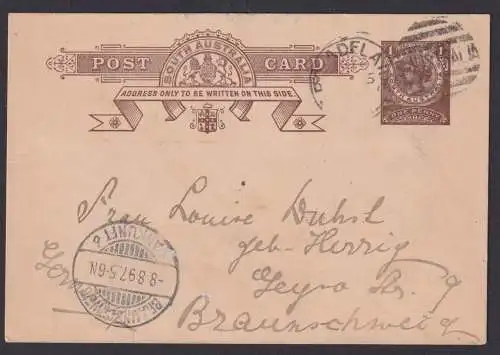 SOUTH AUSTRALIA
POST CARD
ADDRESS ONLY TO BE WRITTEN ON THIS SIDE.
ADELA
ONE PENNY
Frau Louise
geb. Herrig
Str. 9
Braunschweig
ANKUNFT
-8.8.97.5-6N.
BRAUNSCHWEIG